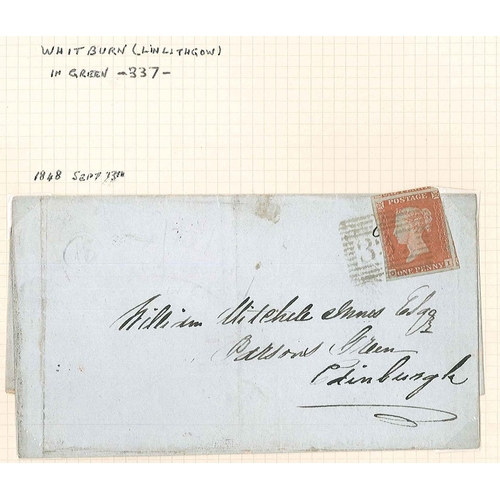 WHITBURN (LINLITHGOW)
IN GREEN -337-
1848 SEPT 13TH
POSTAGE
ONE PENNY
William Mitchele Innes Esqr
Parsons Green
Edinburgh